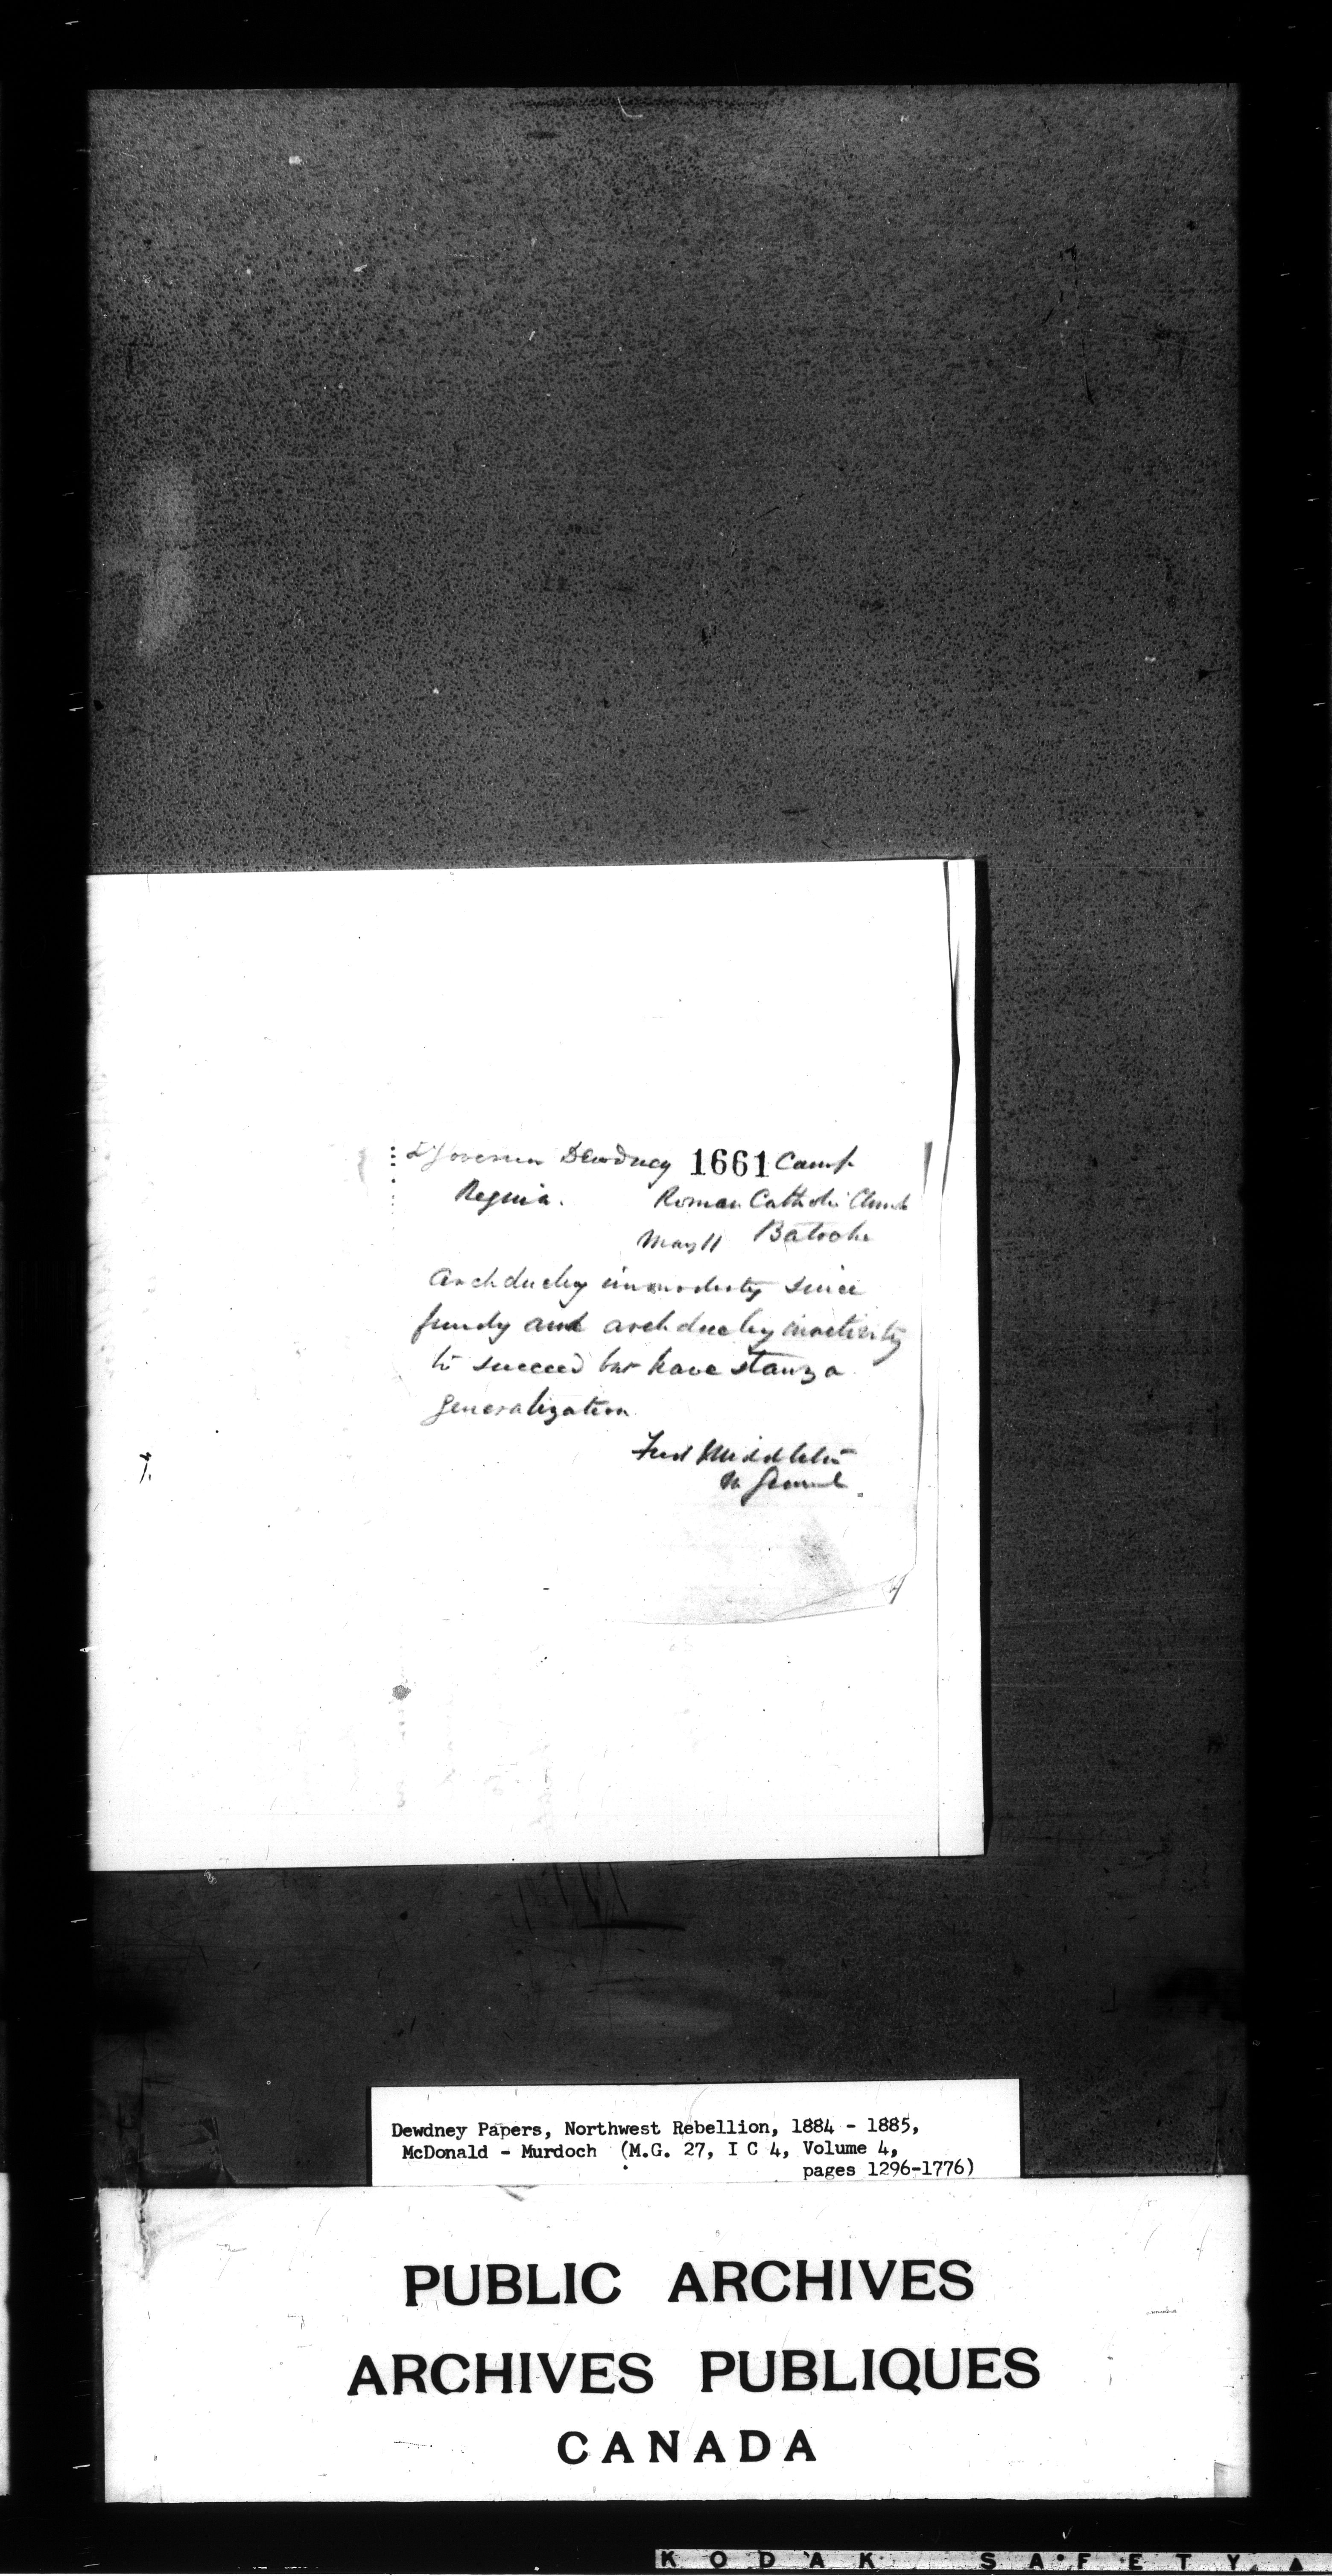 Lt Governor Dewdney 1661 Camp
Regina. Roman Catholic Church
May 11 Batoche
Archduchy immodesty since
fundy and archduchy inactivity
to succeed but have stanza
generalization
Fred Middleton
M General
Dewdney Papers, Northwest Rebellion, 1884 - 1885,
McDonald - Murdoch (M.G. 27, I C 4, Volume 4,
pages 1296-1776)
PUBLIC ARCHIVES
ARCHIVES PUBLIQUES
CANADA
KODAK SAFETY